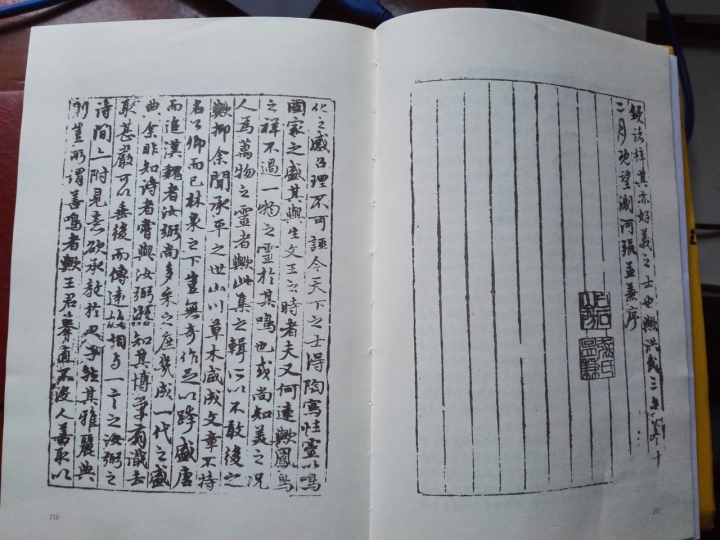 化之感召理不可誣今天下之士得陶寫性靈以鳴
國家之盛其與生文王之時者夫又何遠歟鳳鳥
之祥不過一物之靈於其鳴也或尚知美之況
人為萬物之靈者歟此集之輯所以不敢後之
歟抑余聞承平之世山川草木咸成文章不特
名公卿而已林泉之下豈無奇作足以跨盛唐
而追漢魏者汝弼尚多采之庶幾成一代之盛
典余非知詩者嘗與汝弼游知其博學有識去
取甚嚴可以垂後而傳遠一言之汝弼之
詩間亦附見焉欲承教於其雅麗典
則豈所謂善鳴者歟王君舉直不沒人善取以
710
鋟諸梓其亦好義之士也歟洪武三年十
二月既望河張孟兼序